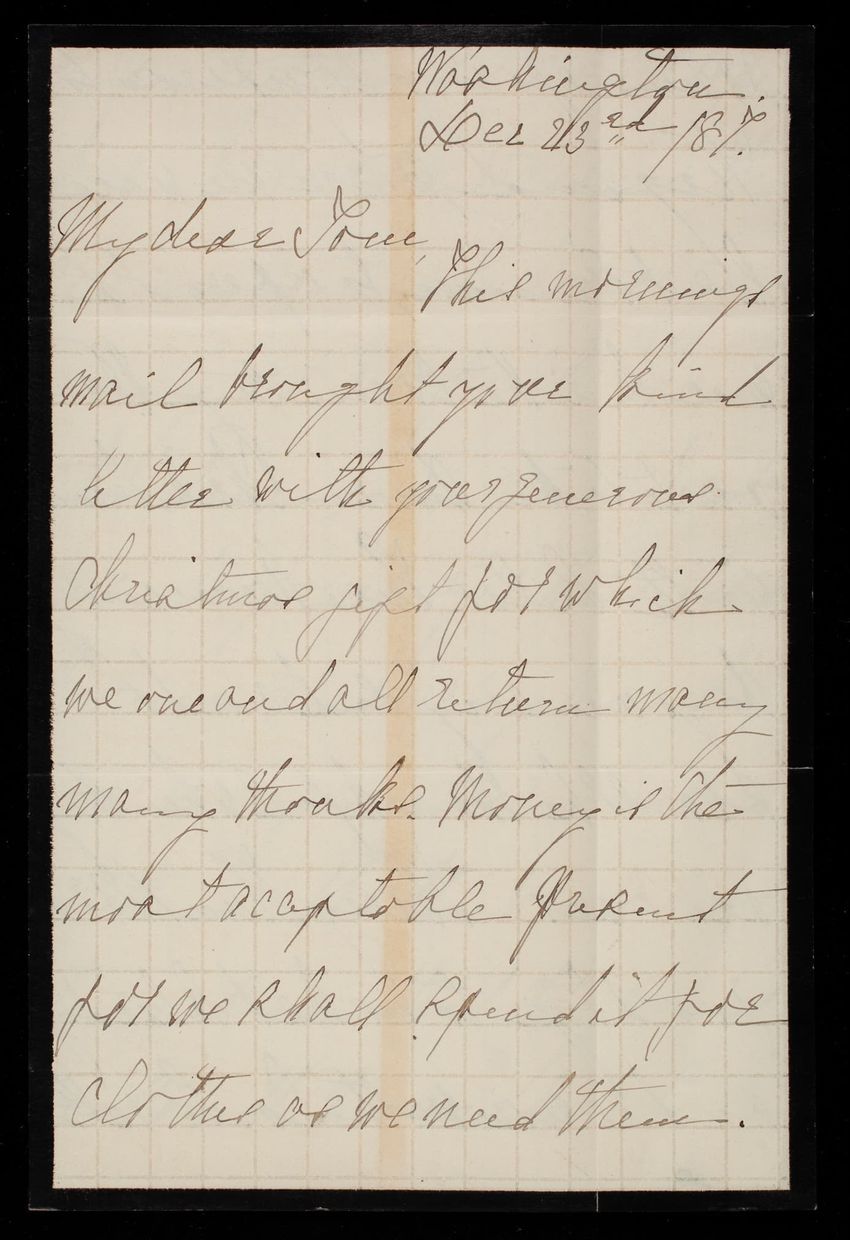 Washington.
Dec 23rd /87.
My dear Tom,
This mornings
mail brought your kind
letter with your generous
Christmas gift for which
we one and all return many
many thanks. Money is the
most acceptable present
for we shall spend it for
clothes as we need them.